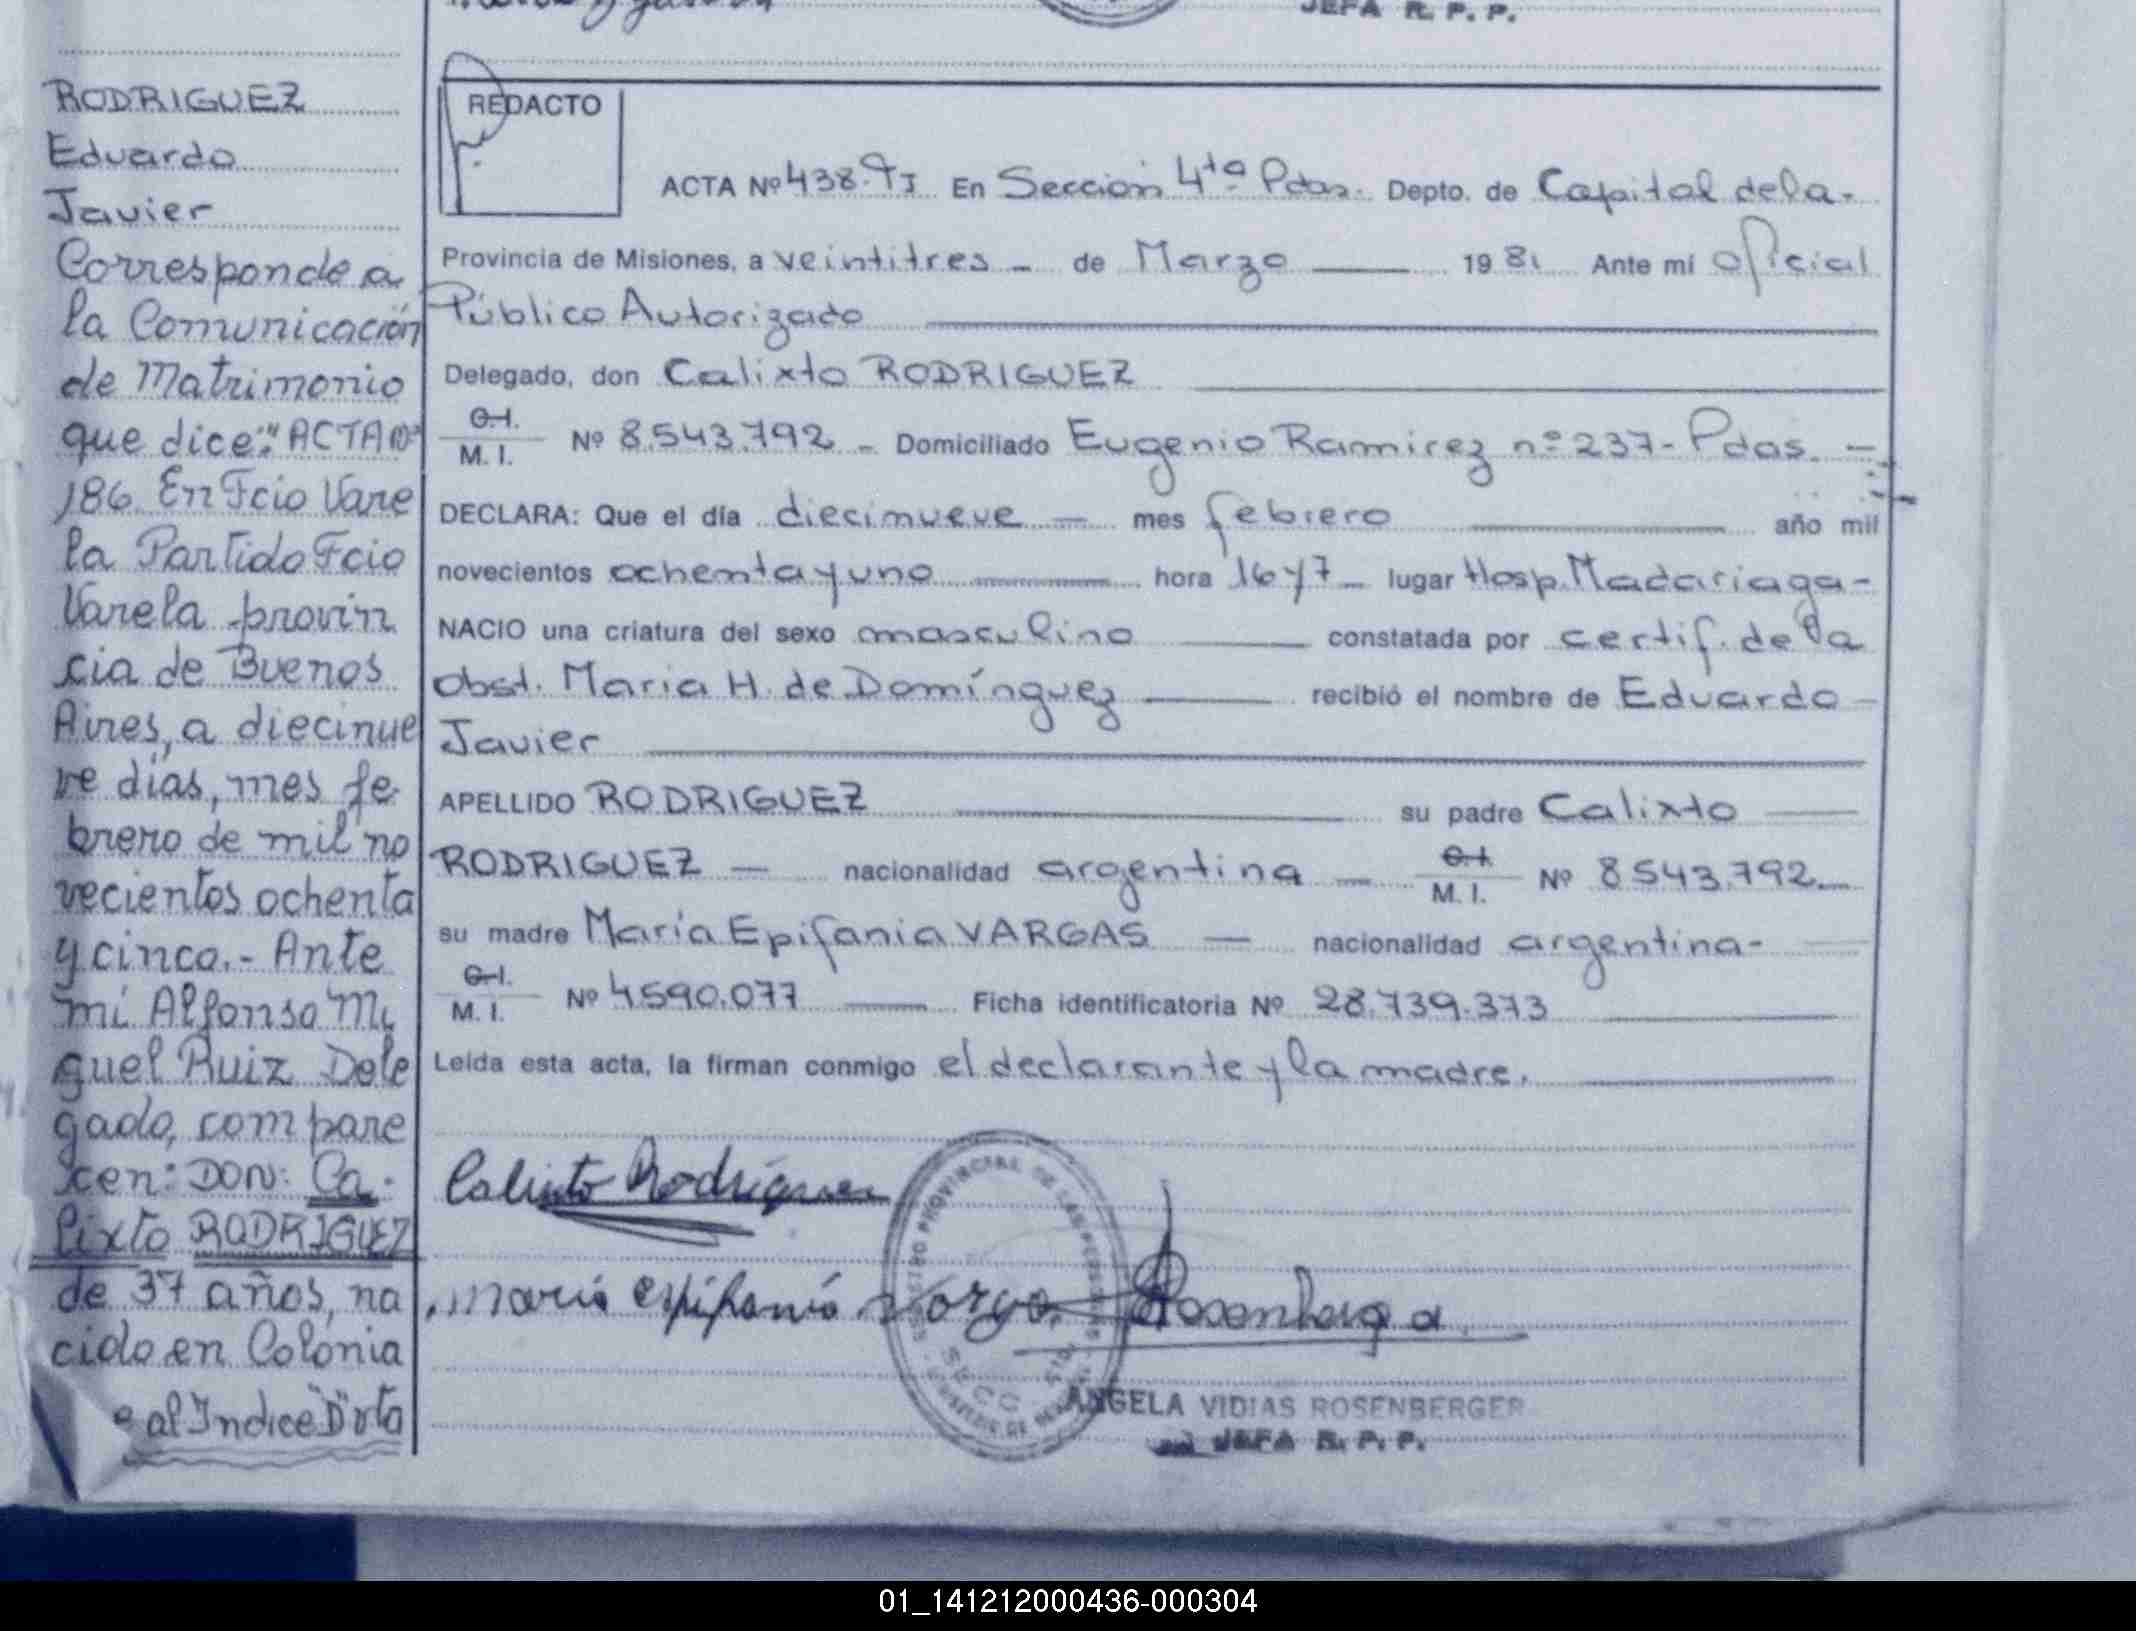 JEFA R. P. P.
RODRIGUEZ
Eduardo
Javier
Corresponde a
la Comunicación
de Matrimonio
que dice:" ACTA Nº
186. En Fcio Vare
la Partido Fcio
Varela provin
cia de Buenos
Aires, a diecinue
ve dias, mes fe
brero de mil no
vecientos ochenta
y cinco.- Ante
mí Alfonso Mi
guel Ruiz Dele
gado, compare
cen: DON: Ca
lixto RODRIGUEZ
de 37 años, na
cido en Colonia
al Indice "D" vta
REDACTO
ACTA Nº 438-TI En Sección 4ta Pdas. Depto. de Capital de la-
Provincia de Misiones, a veintitres - de Marzo 1981 Ante mí Oficial
Público Autorizado
Delegado, don Calixto RODRIGUEZ
C.I.
M. I. Nº 8.543.792 - Domiciliado Eugenio Ramirez nº 237- Pdas. -
DECLARA: Que el día diecinueve - mes febrero año mil
novecientos ochenta y uno hora 16 y 7 - lugar Hosp. Madariaga-
NACIO una criatura del sexo masculino constatada por certif. de la
obst. Maria H. de Domínguez recibió el nombre de Eduardo -
Javier
APELLIDO RODRIGUEZ su padre Calixto
RODRIGUEZ - nacionalidad argentina - C.I.
M. I. Nº 8.543.792
su madre María Epifania VARGAS - nacionalidad argentina-
C.I.
M. I. Nº 4.590.077 Ficha identificatoria Nº 28.739.373
Leída esta acta, la firman conmigo el declarante y la madre.
Calixto Rodriguez
maria espifania Vargas Rosenberger
REGISTRO PROVINCIAL DE LAS PERSONAS
SECC
ANGELA VIDIAS ROSENBERGER
JEFA R. P. P.
01_141212000436-000304